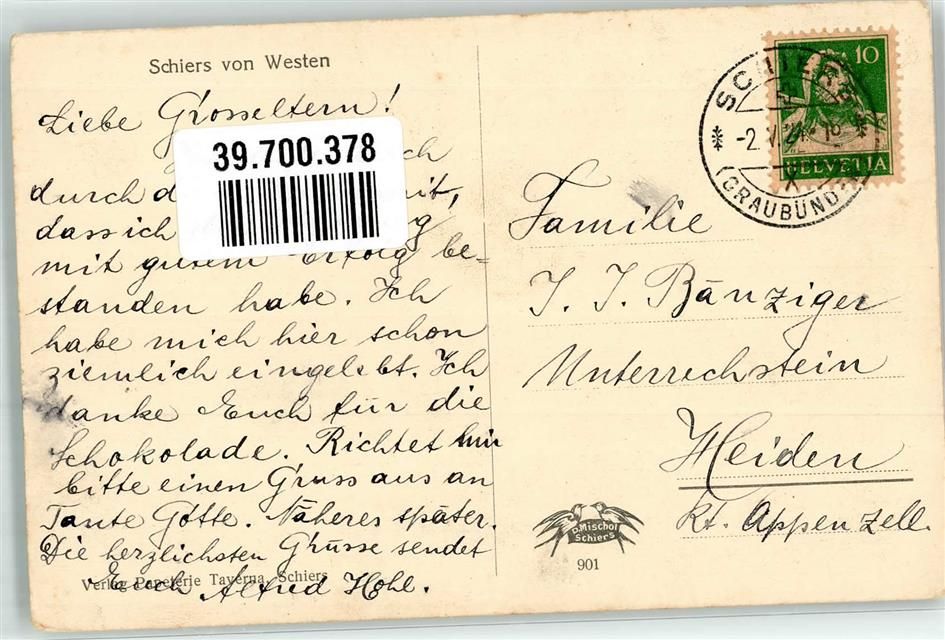 Schiers von Westen
Liebe Grosseltern!
39.700.378
durch
dass ich
mit gutem Erfolg be-
standen habe. Ich
habe mich hier schon
ziemlich eingelebt. Ich
danke Euch für die
Schokolade. Richtet mir
bitte einen Gruss aus an
Tante Götte. Näheres später.
Die herzlichsten Grüsse sendet
Euch Alfred Hohl.
Verlag Papeterie Taverna, Schiers
10
HELVETIA
SCHIERS
(GRAUBÜND
Familie
J. J. Bänziger
Unterrechstein
Heiden
Kt. Appenzell.
D. Mischol
Schiers
901